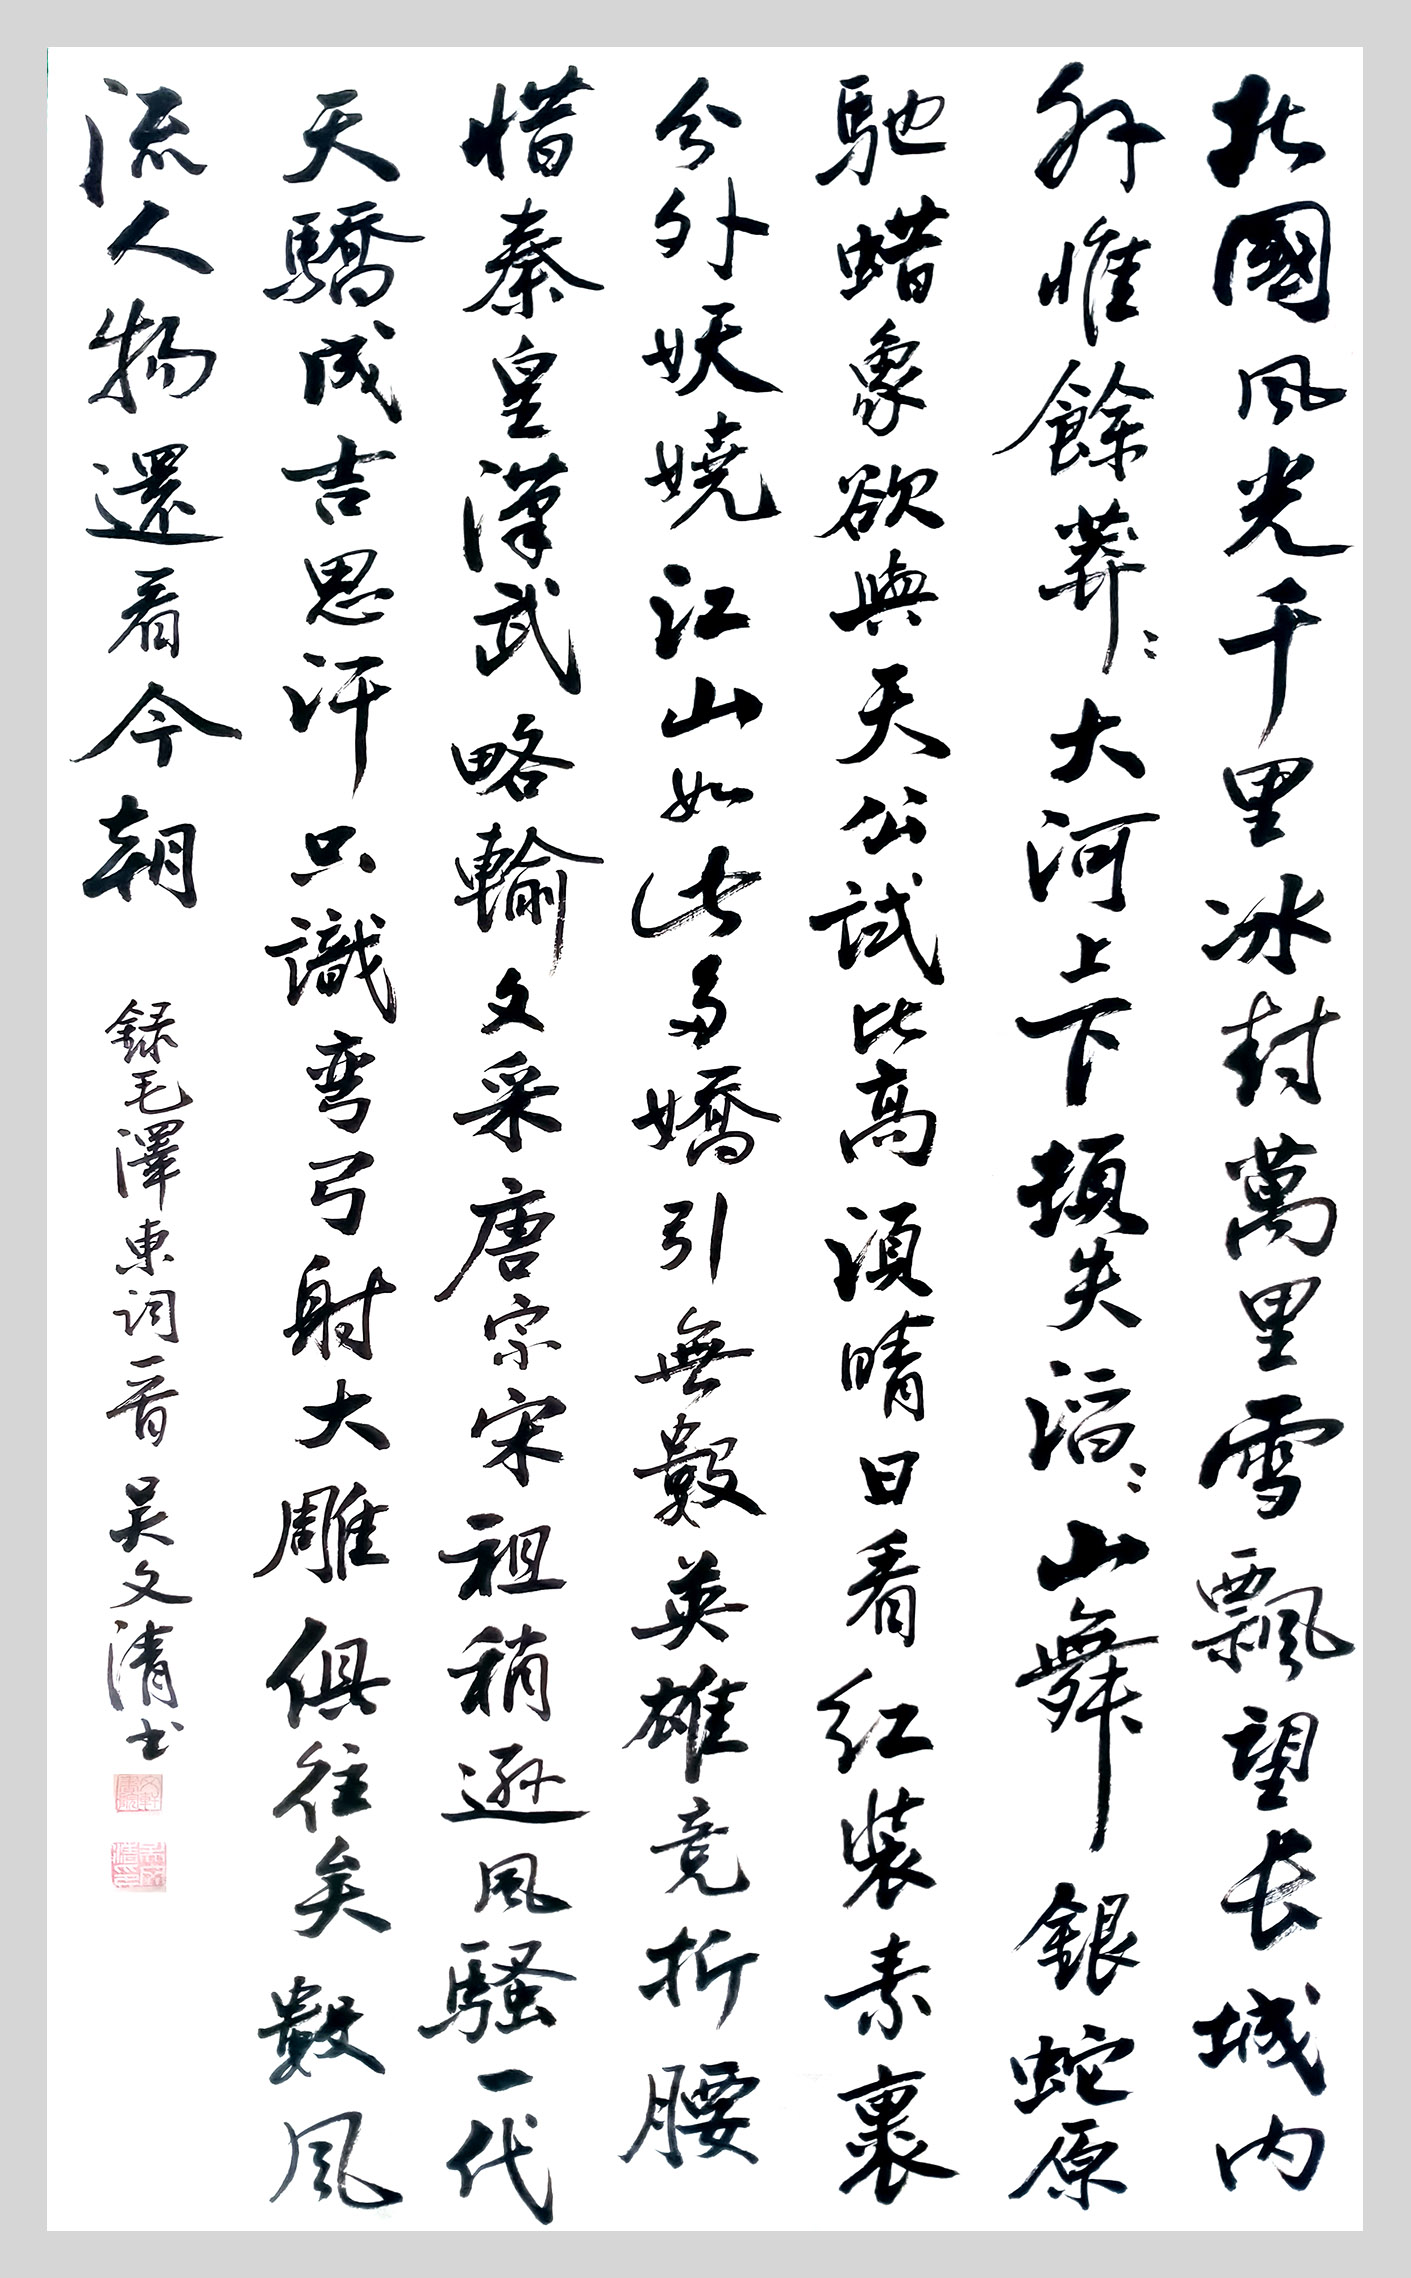 北國風光千里冰封萬里雪飄望长城内
外惟餘莽〻大河上下頓失滔〻山舞銀蛇原
馳蜡象欲與天公試比高須晴日看红裝素裹
分外妖嬈江山如此多嬌引無數英雄竞折腰
惜秦皇漢武略輸文采唐宗宋祖稍遜風騷一代
天驕成吉思汗只識弯弓射大雕俱往矣數风
流人物還看今朝
録毛澤東詞一首吴文清书